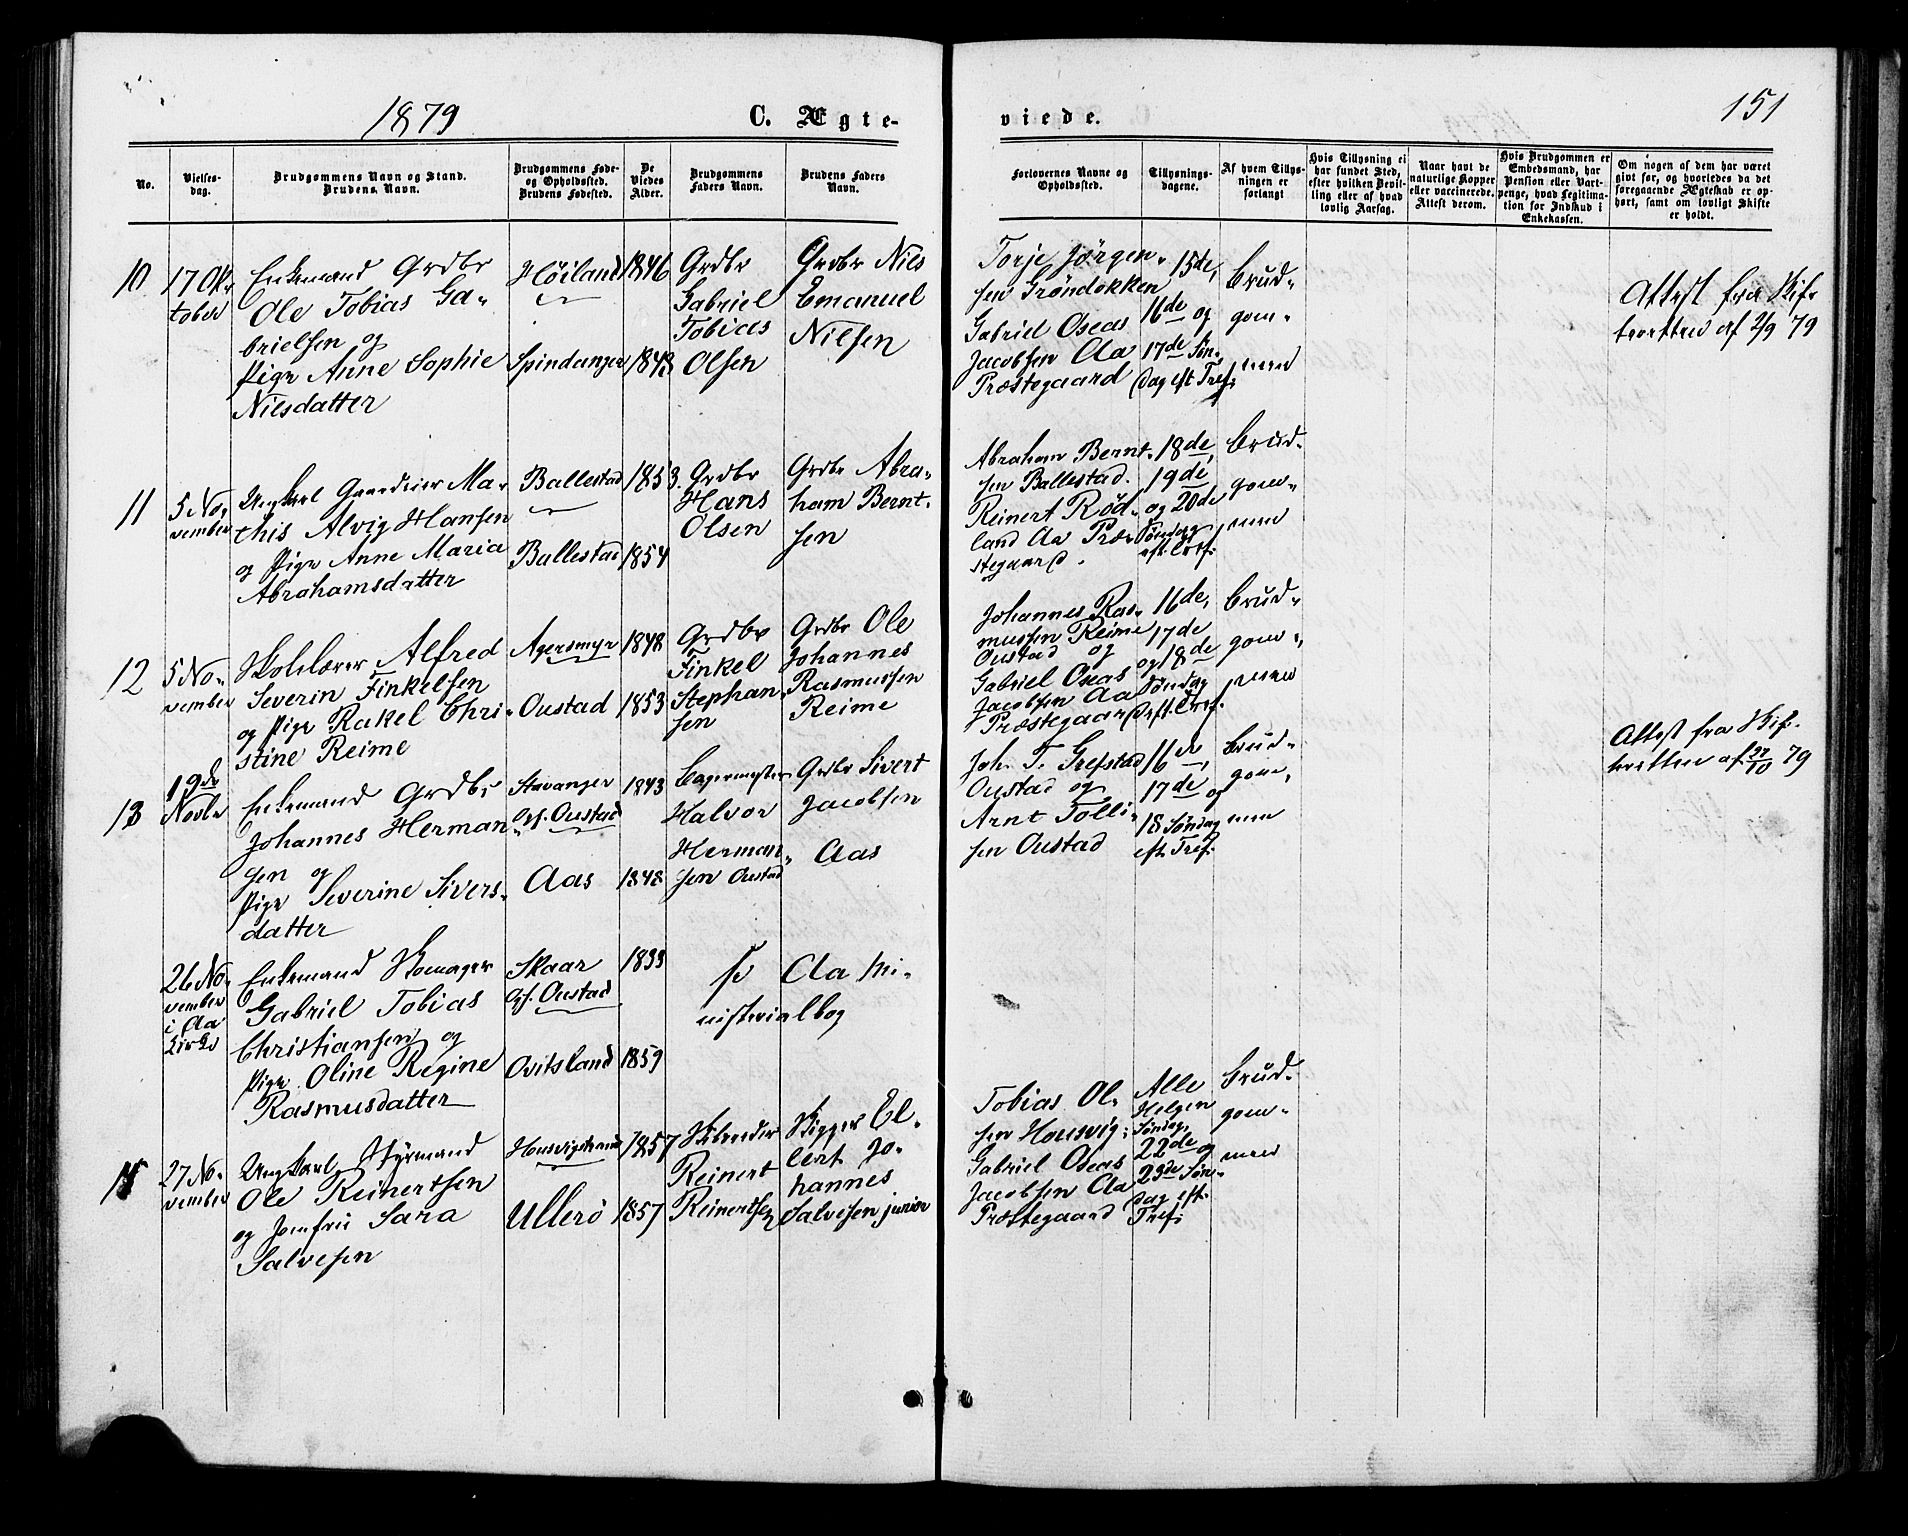 1879
C. Ægte-
viede.
151
No.
Vielses-
dag.
Brudgommens Navn og Stand.
Brudens Navn.
Brudgommens Føde-
og Opholdssted.
Brudens Fødested.
De
Viedes
Alder.
Brudgommens
Faders Navn.
Brudens Faders
Navn.
Forlovernes Navne og
Opholdssted.
Tillysnings-
dagene.
Af hvem Tillys-
ningen er
forlangt
Hvis Tillysning ei
har fundet Sted,
efter hvilken Bevil-
ling eller af hvad
lovlig Aarsag.
Naar havt de
naturlige Kopper
eller vaccinerede.
Attest derom.
Hvis Brudgommen er
Embedsmand, har
Pension eller Vart-
penge, hvad Legitima-
tion for Indskud i
Enkekassen.
Om nogen af dem har været
givt før, og hvorledes da det
foregaaende Ægteskab er op-
hørt, samt om lovligt Skifte
er holdt.
10
17 Ok-
tober
Enkemand Grdbr
Ole Tobias Ga-
brielsen og
Pige Anne Sophie
Nilsdatter
Høiland
Spindanger
1846
1843
Grdbr
Gabriel
Tobias
Olsen
Grdbr Nils
Emanuel
Nilsen
Torje Jørgen-
sen Grøndokken
Gabriel Oseas
Jacobsen Aa
Præstegaard
15de,
16de og
17de Søn-
dag eft Tref:
Brud-
gom-
men
Attest fra Skif-
teretten af 2/9 79
11
5 No-
vember
Ungkarl Gaardeier Ma-
this Alvig Hansen
og Pige Anne Maria
Abrahamsdatter
Ballestad
Ballestad
1853.
1854
Grdbr
Hans
Olsen
Grdbr Abra-
ham Bernt-
sen
Abraham Bernt-
sen Ballestad.
Reinert Rød-
land Aa Præ-
stegaard.
18de,
19de
og 20de
Søndag
eft. Tref.
Brud-
gom-
men
12
5 No-
vember
Skolelærer Alfred
Severin Finkelsen
og Pige Rakel Chri-
stine Reime
Agersmyr
Oustad
1848
1853
Grdbr
Finkel
Stephan-
sen
Grdbr Ole
Johannes
Rasmussen
Reime
Johannes Ras-
mussen Reime
Oustad og
Gabriel Oseas
Jacobsen Aa
Præstegaard
16de,
17de
og 18de
Søndag
eft. Tref.
Brud-
gom-
men
13
19de
Novbr
Enkemand Grdbr
Johannes Herman-
sen og
Pige Severine Sivers-
datter
Stavanger
Opf. Oustad
Aas
1843
1848
Halvor
Herman-
sen Oustad
Grdbr Sivert
Jacobsen
Aas
Joh. T. Grefstad
Oustad og
Arnt Tolli-
sen Oustad
16de,
17de og
18 Søndag
eft. Tref.
Brud-
gom-
men
Attest fra Skif-
teretten af 27/10 79
26 No-
vember
i Aa
Kirke
Enkemand Skomager
Gabriel Tobias
Christiansen og
Pige Oline Regine
Rasmusdatter
Skaar
Opf. Oustad
Ovitsland
1833
1859
se Aa Mi-
nisterialbog
27 No-
vember
Ungkarl, Styrmand
Ole Reinertsen
og Jomfru Sara
Salvesen
Ullerø
1857
1857
Reinert
Reinertsen
Skipper El-
lert Jo-
hannes
Salvesen junior
Tobias Ol-
sen Housvig;
Gabriel Oseas
Jacobsen Aa
Præstegaard
Alle
Helgen
Søndag,
22de og
23de Søn-
dag eft.
Tref:
Brud-
gom-
men